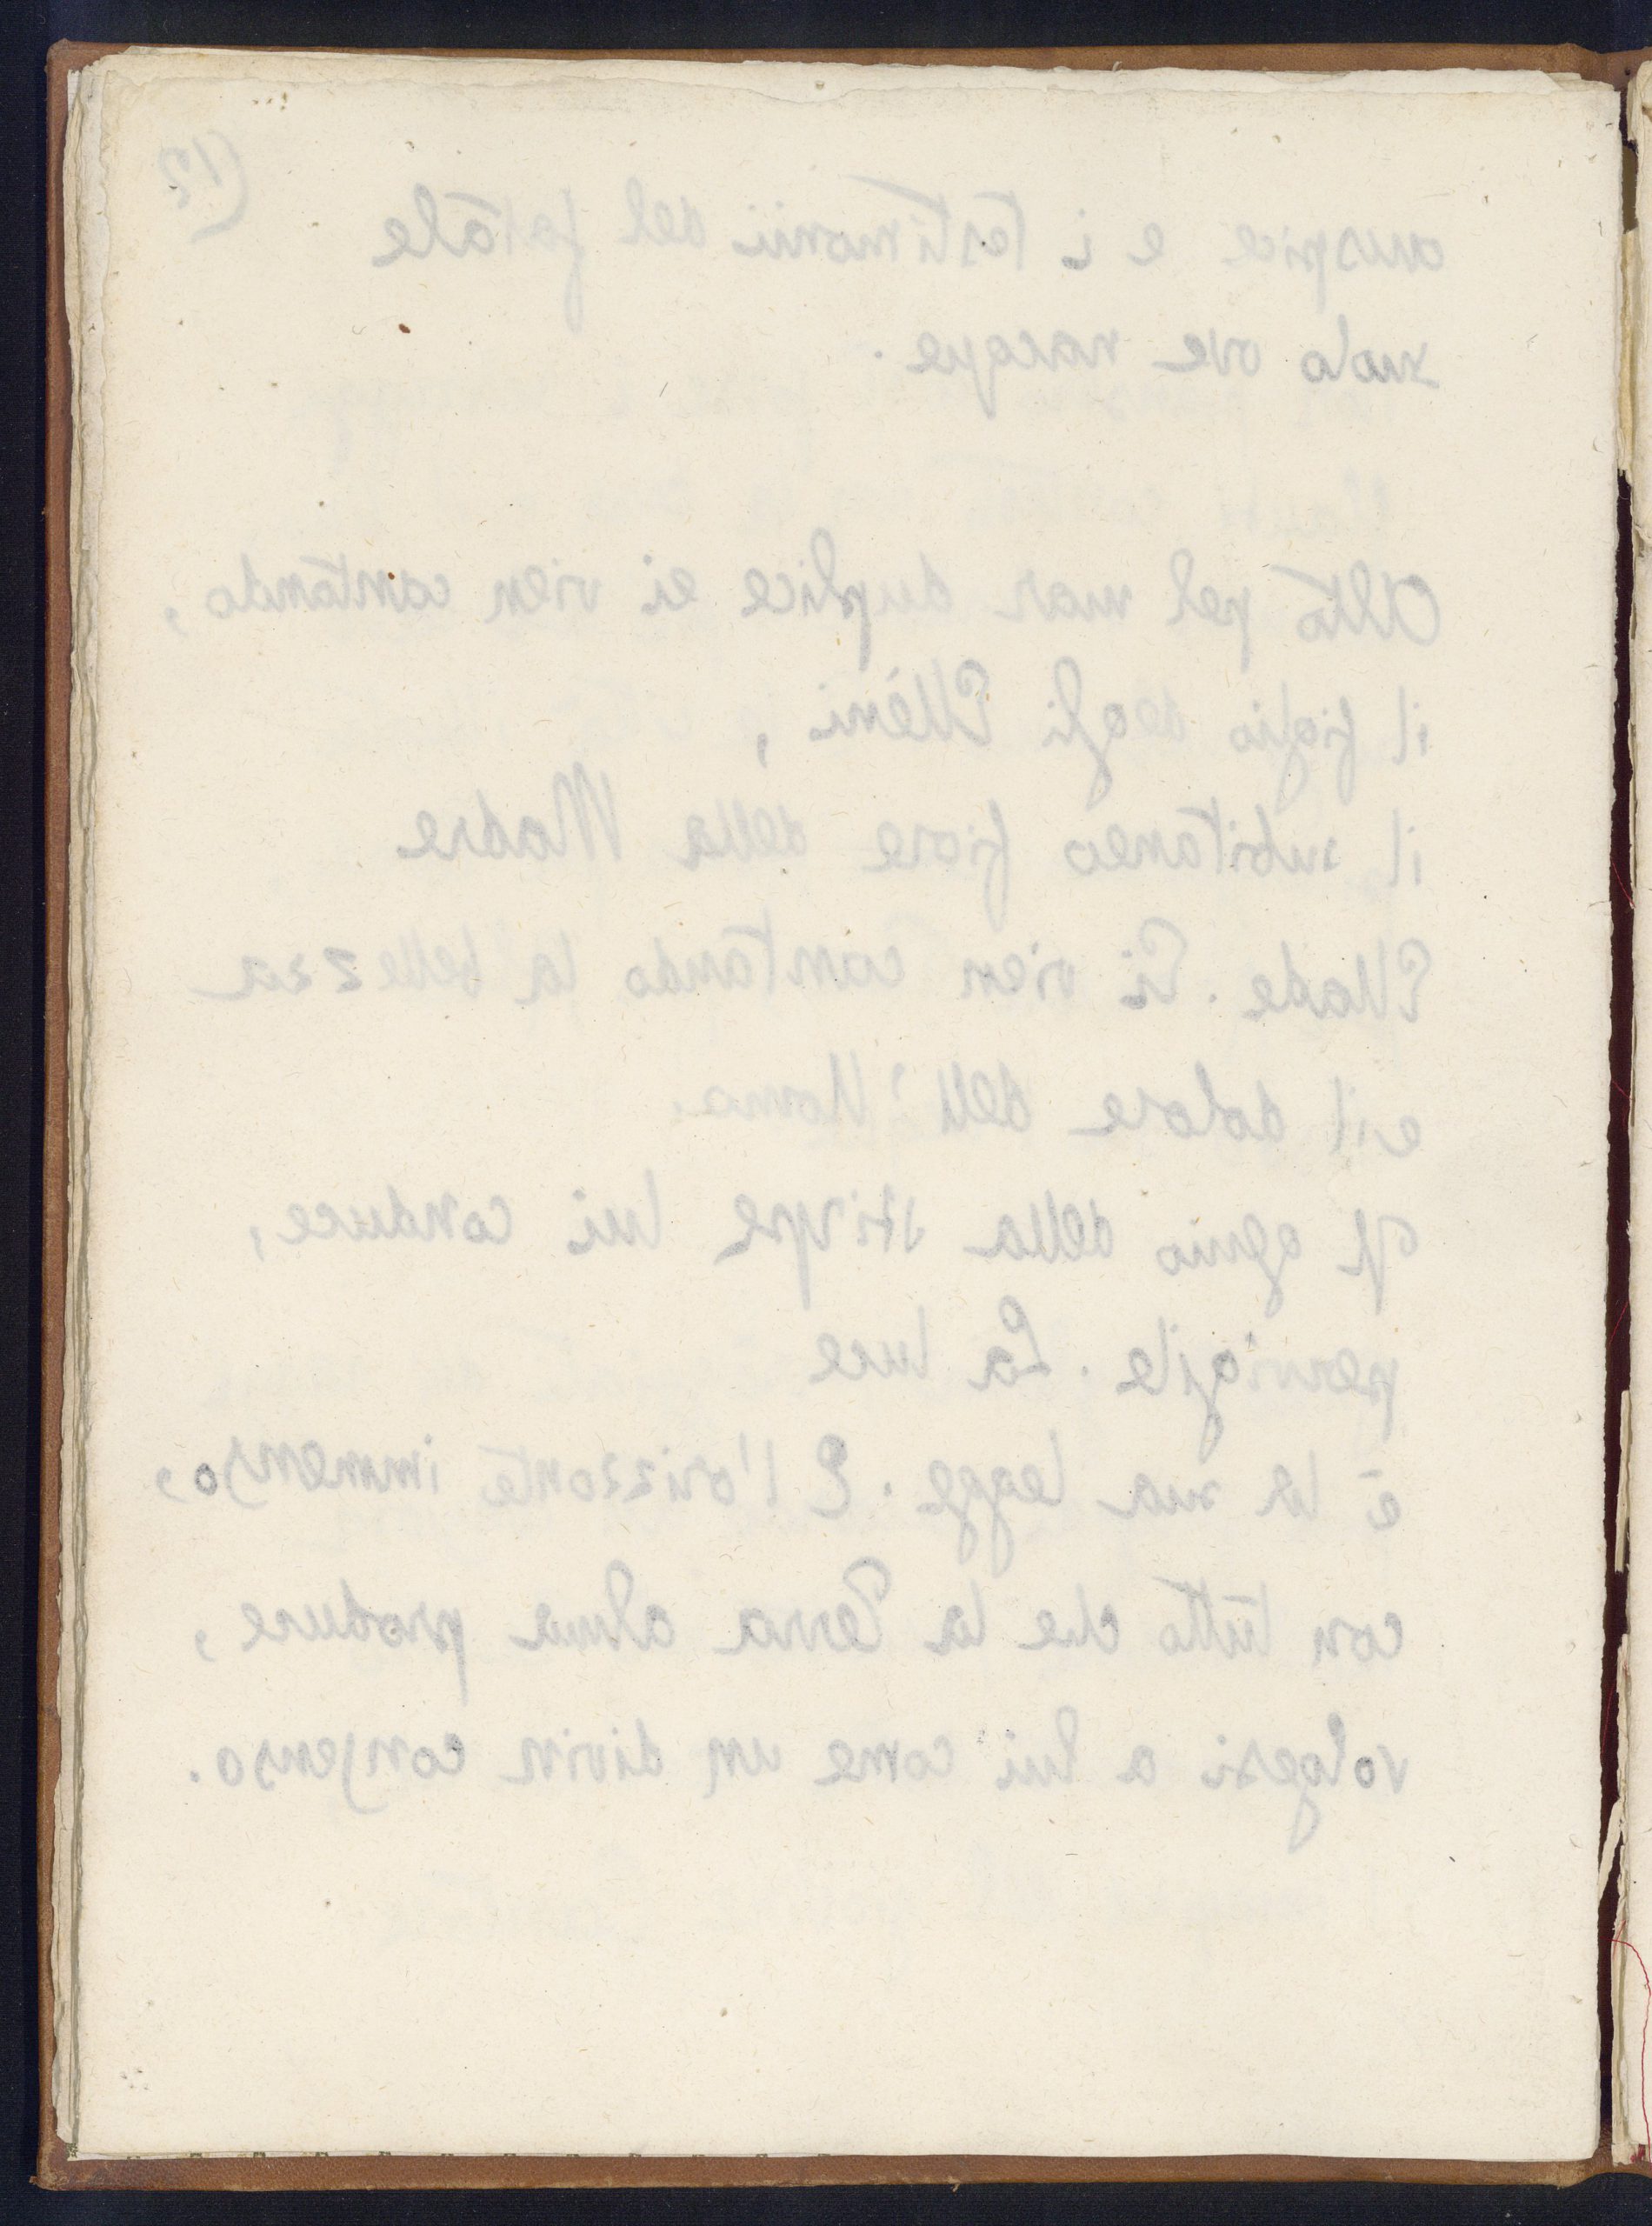 (12
auspice e i testimonii del fatale
suolo ove nacque.
Alto pel mar duplice ei vien cantando,
il figlio degli Ellèni,
il subitaneo fiore della Madre
Ellade. Ei vien cantando la bellezza
e il dolore dell'Uomo.
Il genio della stirpe lui conduce,
pervigile. La luce
è la sua legge. E l'orizzonte immenso,
con tutto che la Terra alma produce,
volgesi a lui come un divin consenso.